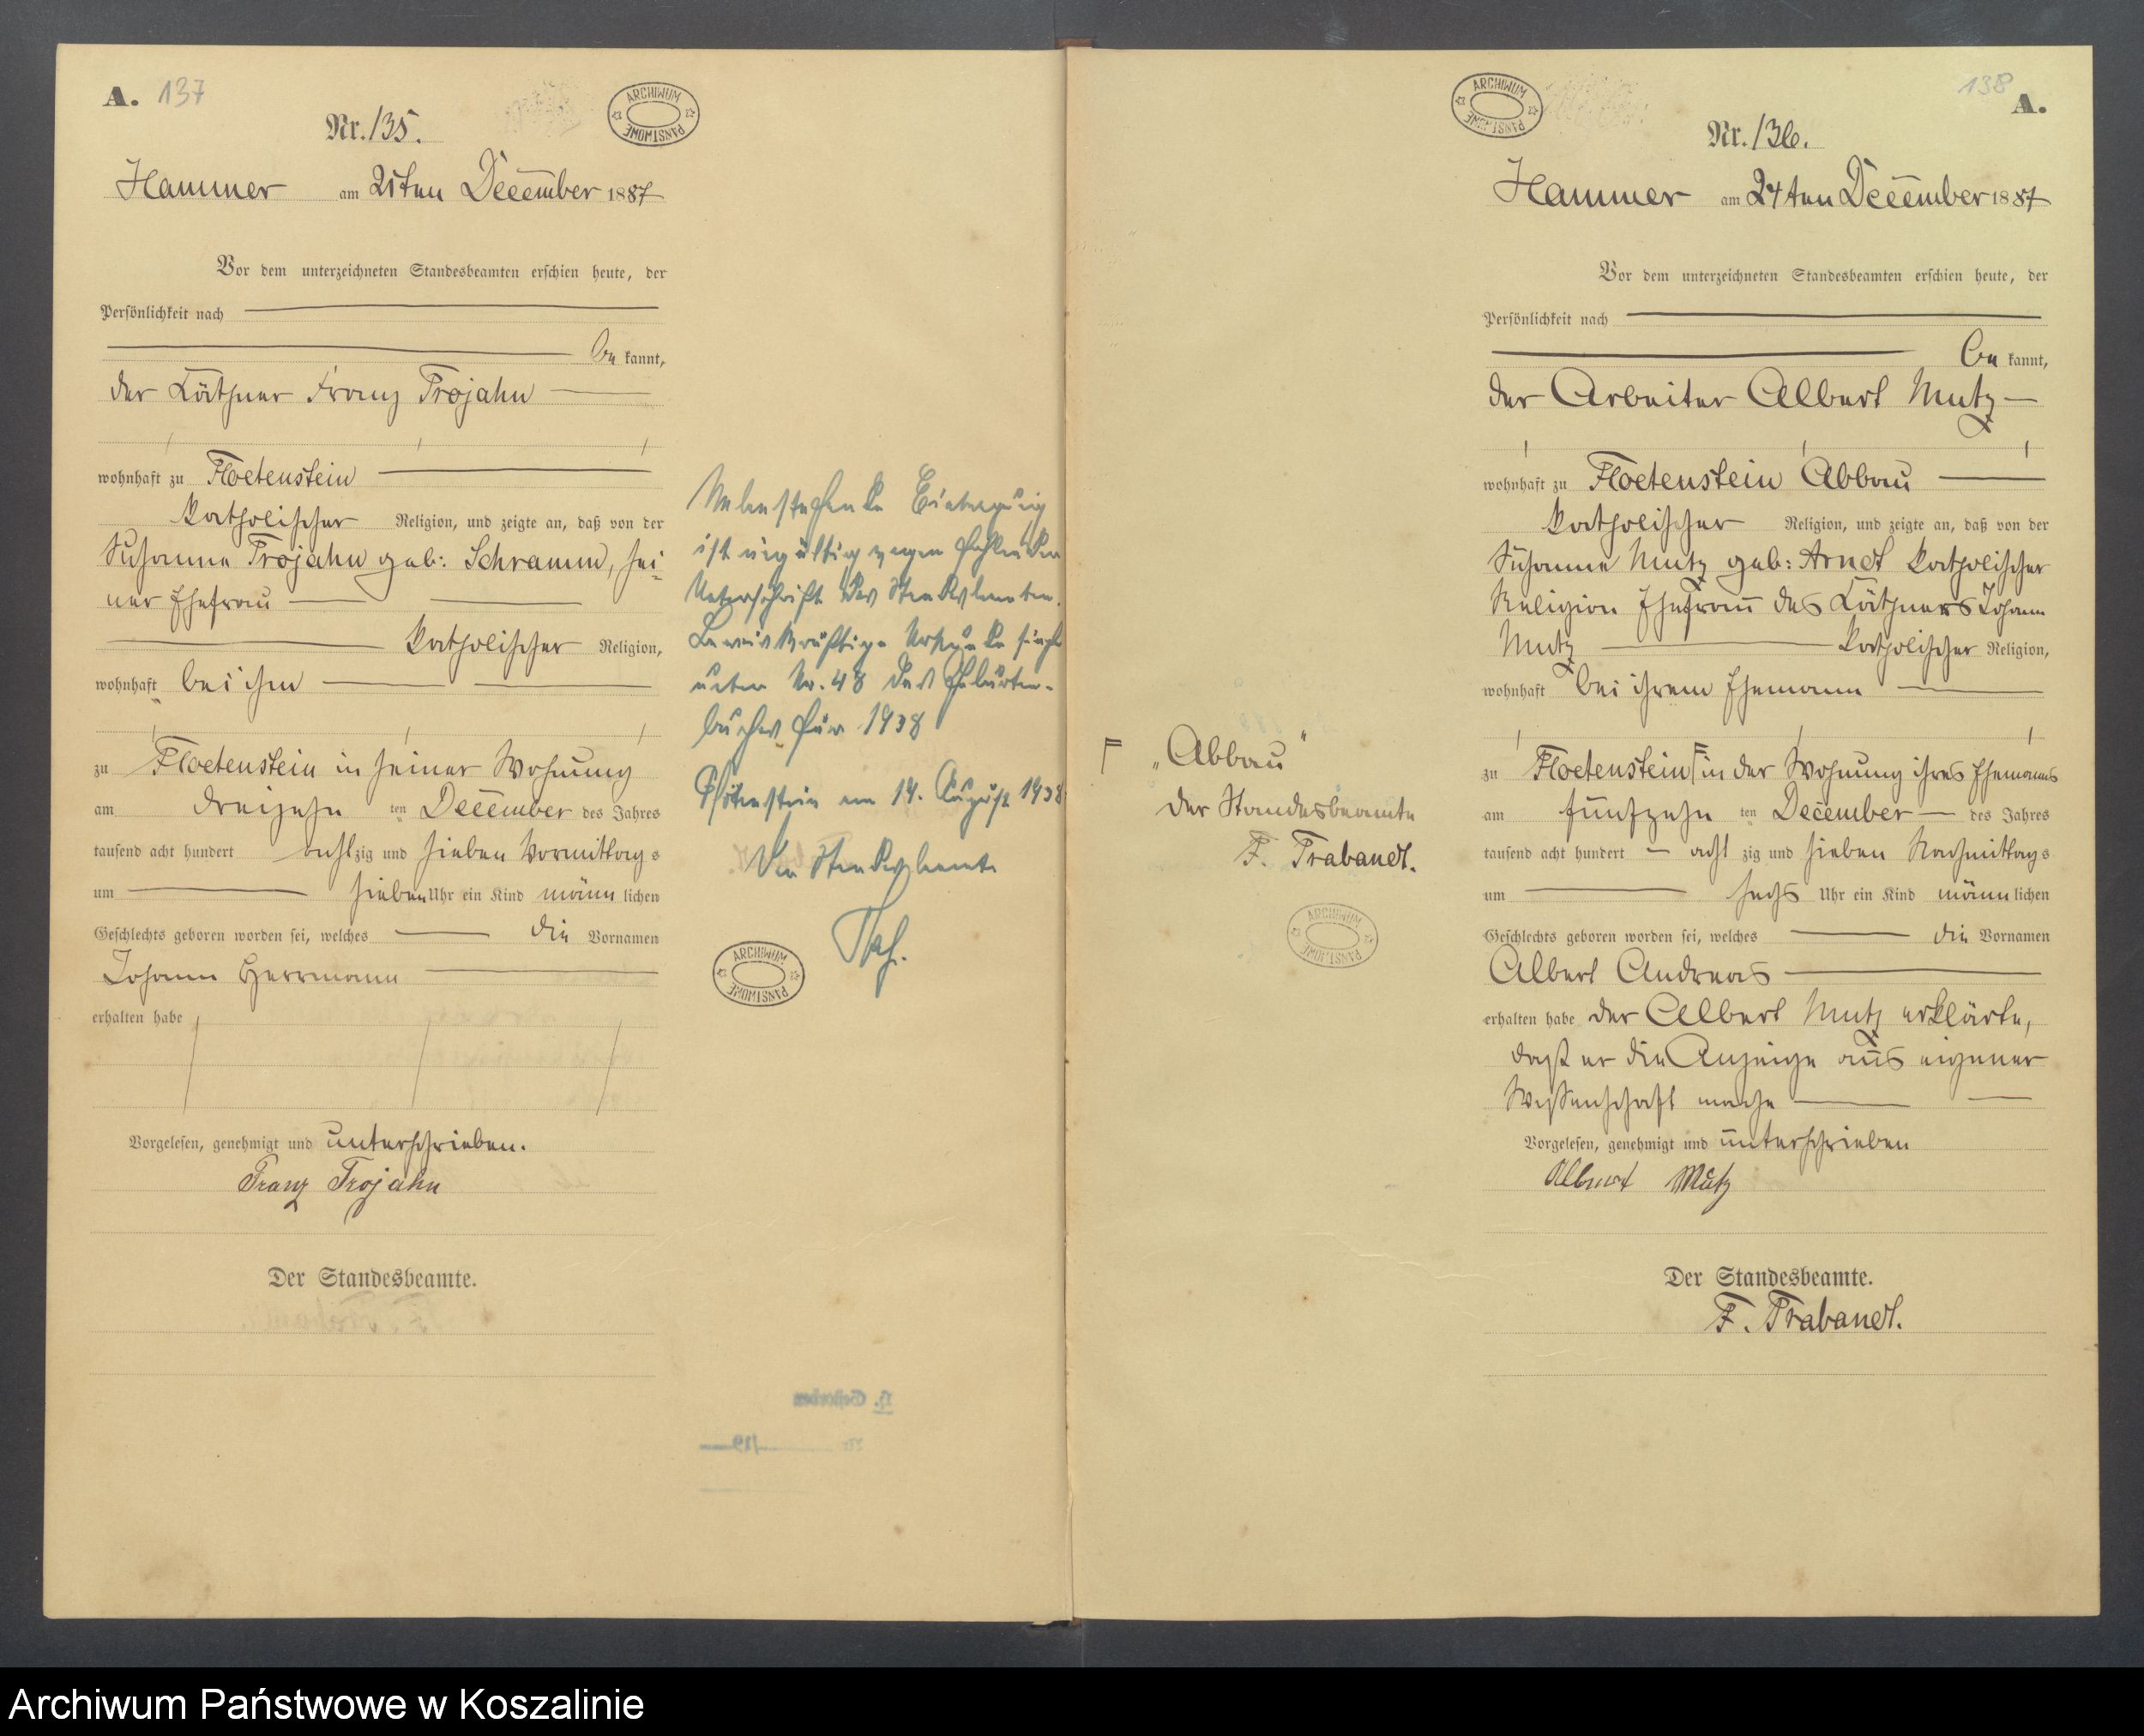 A. 137
ARCHIWUM PAŃSTWOWE
Nr. 135.
Hammer am 21ten December 1887
Vor dem unterzeichneten Standesbeamten erschien heute, der
Persönlichkeit nach
be kannt,
der Käthner Franz Trojahn
wohnhaft zu Floetenstein
katholischer Religion, und zeigte an, daß von der
Susanna Trojahn geb: Schramm, sei-
ner Ehefrau
katholischer Religion,
wohnhaft bei ihm
zu Floetenstein in seiner Wohnung
am dreizehn ten December des Jahres
tausend acht hundert achtzig und sieben Vormittags
um sieben Uhr ein Kind männlichen
Geschlechts geboren worden sei, welches die Vornamen
Johann Herrmann
erhalten habe
Vorgelesen, genehmigt und unterschrieben.
Franz Trojahn
Der Standesbeamte.
Nebenstehende Eintragung
ist ungültig wegen fehlender
Unterschrift des Standesbeamten.
Beweiskräftige Urkunde siehe
unter Nr. 48 des Geburten-
buches für 1938
Flötenstein am 19. August 1938
Der Standesbeamte
ARCHIWUM PAŃSTWOWE
ARCHIWUM PAŃSTWOWE
138 A.
Nr. 136.
Hammer am 24ten December 1887
Vor dem unterzeichneten Standesbeamten erschien heute, der
Persönlichkeit nach
be kannt,
der Arbeiter Albert Mutz
wohnhaft zu Floetenstein Abbau
katholischer Religion, und zeigte an, daß von der
Susanna Mutz geb: Arndt katholischer
Religion Ehefrau des Käthners Johann
Mutz katholischer Religion,
wohnhaft bei ihrem Ehemann
zu Floetenstein in der Wohnung ihres Ehemanns
am fünfzehn ten December des Jahres
tausend acht hundert acht zig und sieben Nachmittags
um sechs Uhr ein Kind männlichen
Geschlechts geboren worden sei, welches die Vornamen
Albert Andreas
erhalten habe der Albert Mutz erklärte,
daß er die Anzeige aus eigener
Wissenschaft mache
Vorgelesen, genehmigt und unterschrieben
Albert Mutz
Der Standesbeamte.
F. Trabandt.
„Abbau"
Der Standesbeamte
F. Trabandt.
ARCHIWUM PAŃSTWOWE
Archiwum Państwowe w Koszalinie